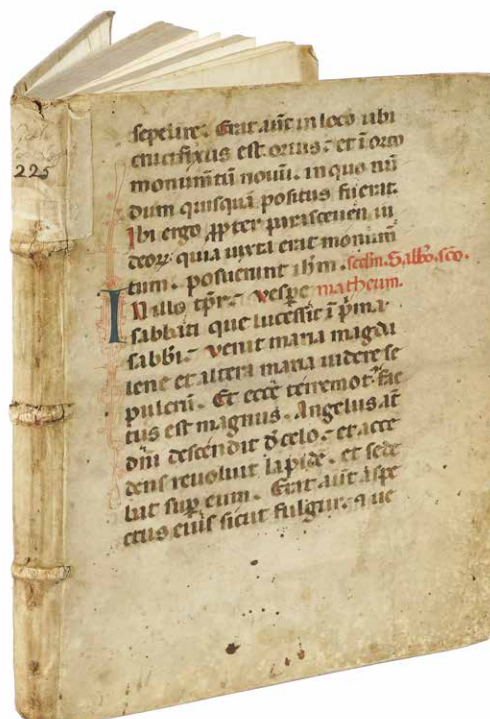 225
sepelire. Erat aūt in loco ubi
crucifixus est ortus: et ī orto
monumētū novū. in quo nū
dum quisquā positus fuerat.
Ibi ergo ꝓpter parasceuen iu
deoꝝ. quia iuxta erat monum̄
tum. posuerunt ih̄m. scdm. Sabb̄o. sc̄o.
IN illo tp̄r. Vesꝑe matheum.
sabbati que lucessit ī p̄ma
sabb̄i. venit maria magda
lene et altera maria uidere se
pulcrū. Et ecce terremot᷒ fac
tus est magnus. Angelus aūt
dn̄i descendit d̄ celo. et acce
dens revoluit lapidē. et sede
bat suꝑ eum. Erat aūt aspe
ctus eius sicut fulgur. que